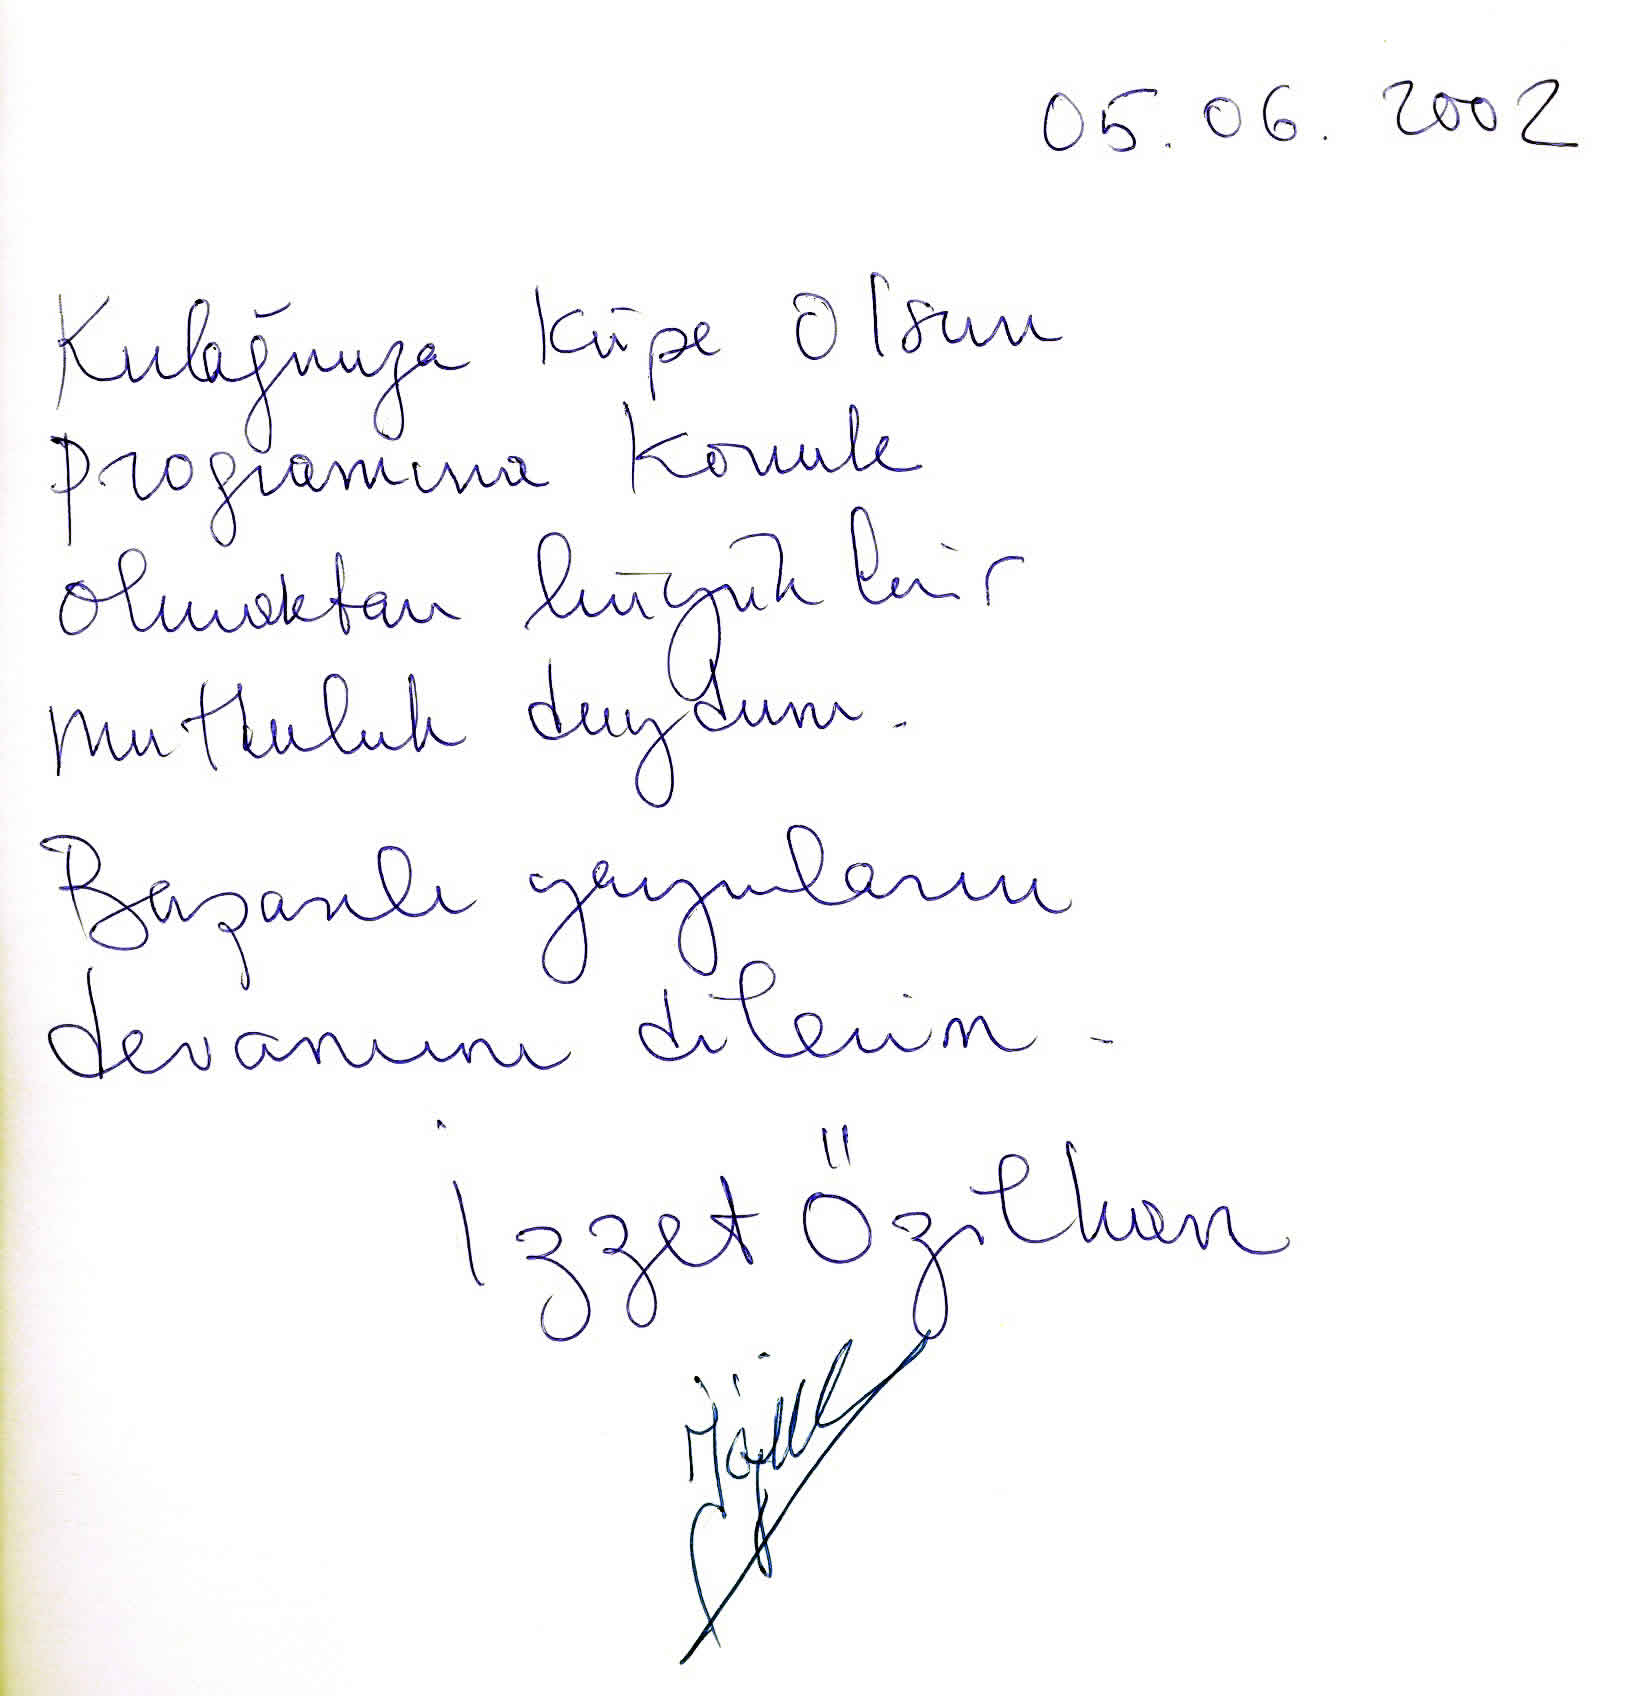 05.06.2002
Kulağınıza Küpe Olsun
programına Konuk
olmaktan büyük bir
mutluluk duydum.
Başarılı yayınların
devamını dilerim.
İzzet Özilhan